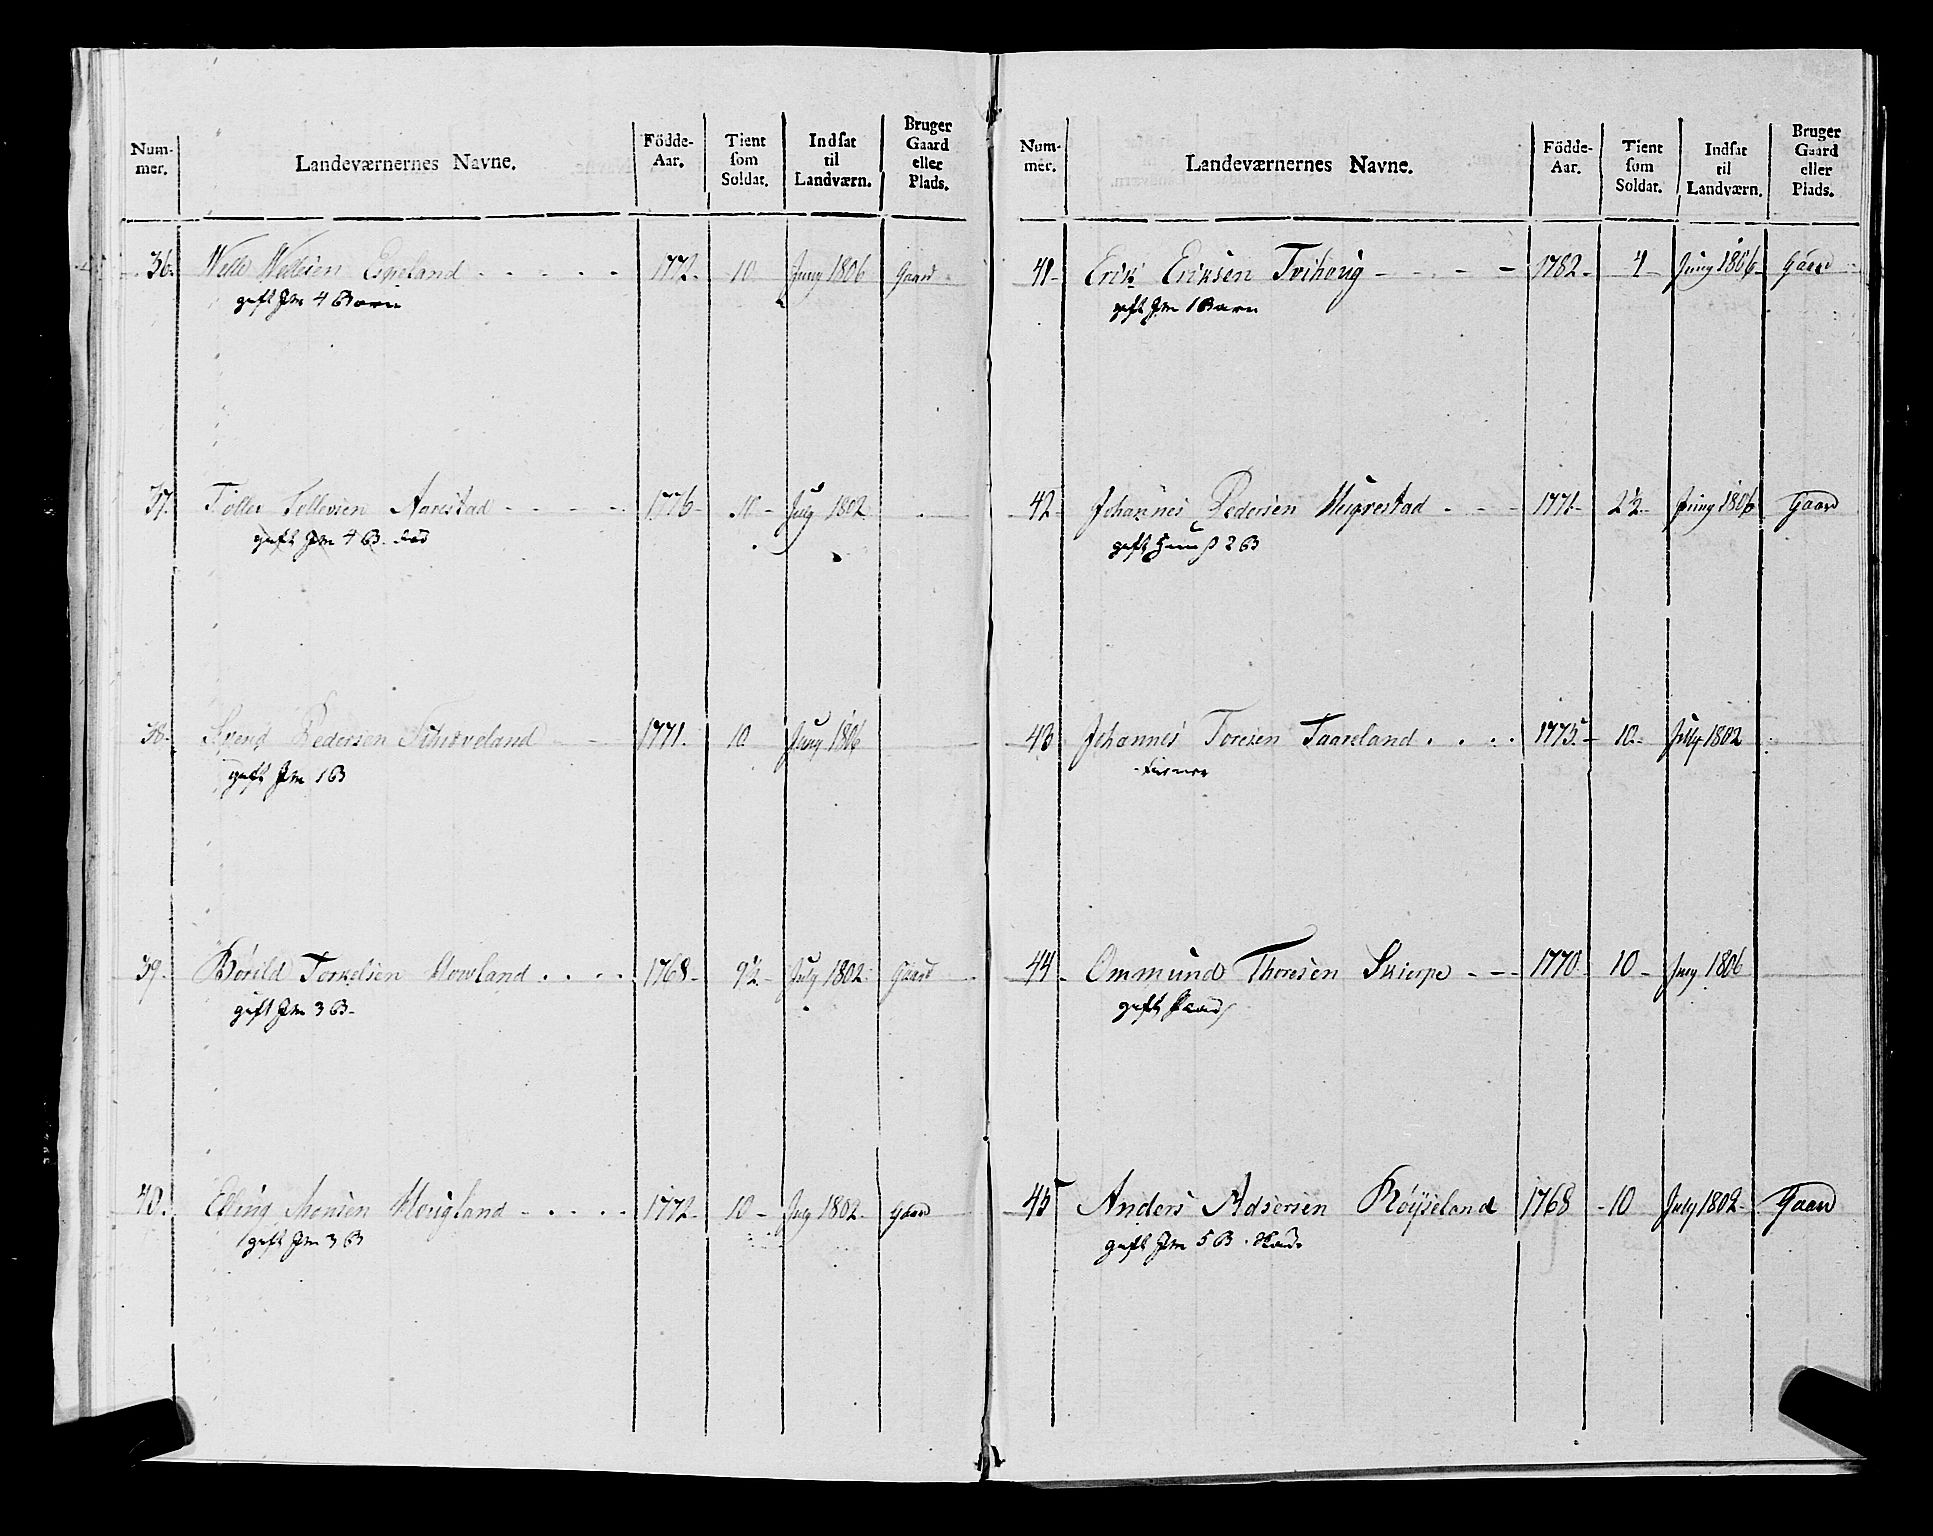 Num-
mer.
Landeværnernes Navne.
Födde-
Aar.
Tient
som
Soldat.
Indsat
til
Landværn.
Bruger
Gaard
eller
Plads.
36. Welle Wellesen Eseland 1772. 10 Juny 1806 Gaard
gift Im 4 Børn
37. Tollev Tollevsen Aarestad 1776 10 July 1802
gift Im 4 B.
38. Svend Pedersen 1771. 10 Juny 1806
gift Im 1 B
39. Börild Torkelsen Howland 1768 9½ July 1802 Gaard
gift Im 3 B
40. Elling Monsen Hougland 1772 10 July 1802 Gaard
gift Im 3 B
Num-
mer.
Landeværnernes Navne.
Födde-
Aar.
Tient
som
Soldat.
Indsat
til
Landværn.
Bruger
Gaard
eller
Plads.
41 Erik Eriksen Tvihoug 1782 4 Juny 1806 Gaard
gift Im 1 Barn
42 Johannes Pedersen Hegrestad 1771 2½ Juny 1806 Gaard
gift 2 B
43 Johannes Toresen Taareland 1775 10 July 1802
44 Ommund Thoresen Skierpe 1770 10 Juny 1806
gift
45 Anders Adsersen Röyseland 1768 10 July 1802 Gaard
gift Im 5 B.